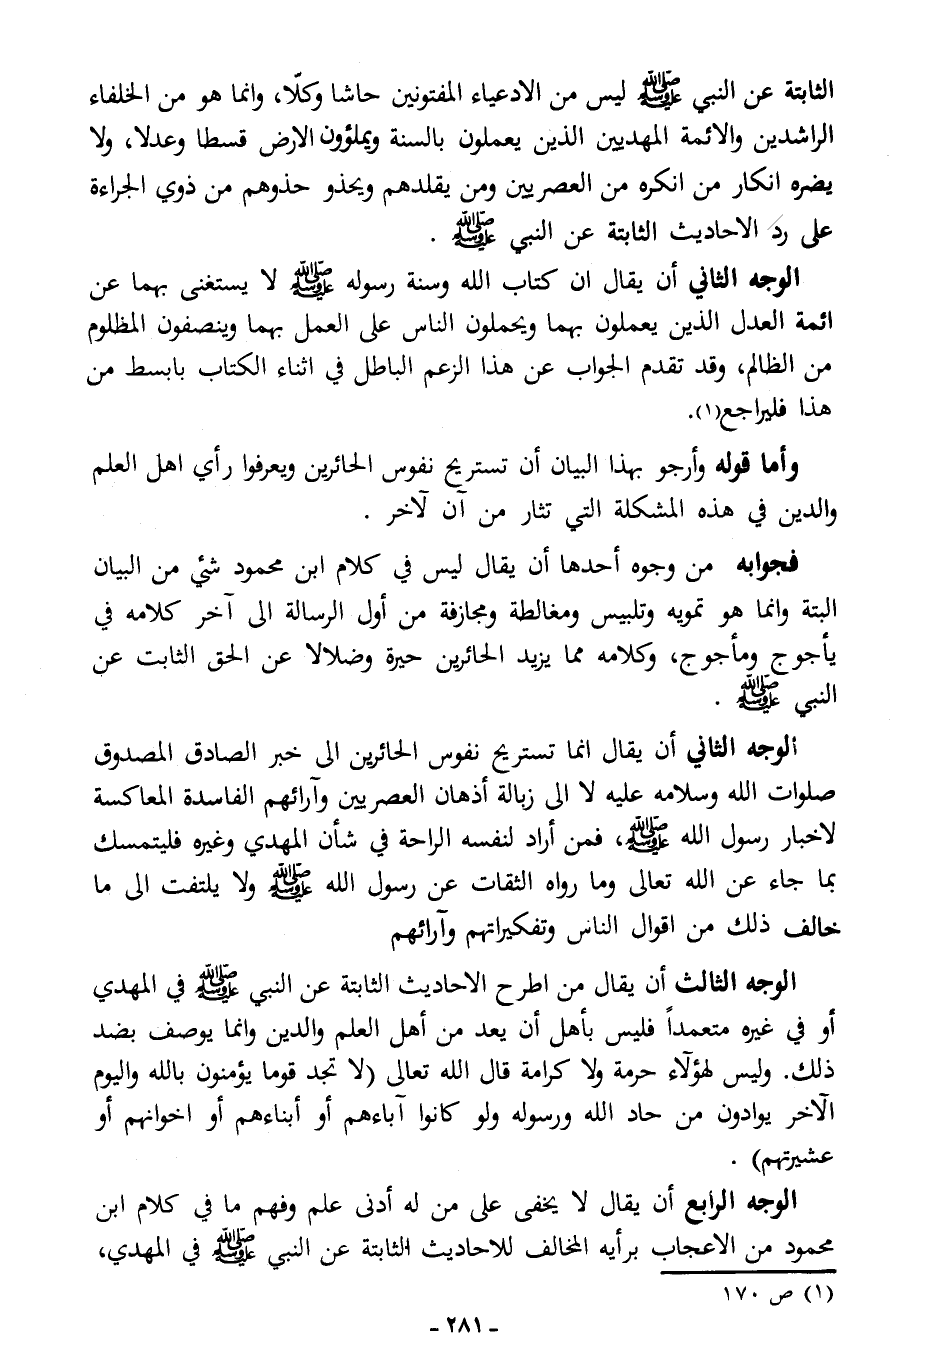 الثابتة عن النبي ﷺ ليس من الادعياء المفتونين حاشا وكلّا، وانما هو من الخلفاء
الراشدين والائمة المهديين الذين يعملون بالسنة ويملؤون الارض قسطا وعدلا، ولا
يضره انكار من انكره من العصريين ومن يقلدهم ويحذو حذوهم من ذوي الجراءة
على ردّ الاحاديث الثابتة عن النبي ﷺ .
الوجه الثاني أن يقال ان كتاب الله وسنة رسوله ﷺ لا يستغنى بهما عن
ائمة العدل الذين يعملون بهما ويحملون الناس على العمل بهما وينصفون المظلوم
من الظالم، وقد تقدم الجواب عن هذا الزعم الباطل في اثناء الكتاب بابسط من
هذا فليراجع(١).
وأما قوله وأرجو بهذا البيان أن تستريح نفوس الحائرين ويعرفوا رأي اهل العلم
والدين في هذه المشكلة التي تثار من آن لآخر .
فجوابه من وجوه أحدها أن يقال ليس في كلام ابن محمود شئي من البيان
البتة وانما هو تمويه وتلبيس ومغالطة ومجازفة من أول الرسالة الى آخر كلامه في
يأجوج ومأجوج، وكلامه مما يزيد الحائرين حيرة وضلالا عن الحق الثابت عن
النبي ﷺ .
الوجه الثاني أن يقال انما تستريح نفوس الحائرين الى خبر الصادق المصدوق
صلوات الله وسلامه عليه لا الى زبالة أذهان العصريين وآرائهم الفاسدة المعاكسة
لاخبار رسول الله ﷺ، فمن أراد لنفسه الراحة في شأن المهدي وغيره فليتمسك
بما جاء عن الله تعالى وما رواه الثقات عن رسول الله ﷺ ولا يلتفت الى ما
خالف ذلك من اقوال الناس وتفكيراتهم وآرائهم
الوجه الثالث أن يقال من اطرح الاحاديث الثابتة عن النبي ﷺ في المهدي
أو في غيره متعمداً فليس بأهل أن يعد من أهل العلم والدين وانما يوصف بضد
ذلك. وليس لهؤلآء حرمة ولا كرامة قال الله تعالى (لا تجد قوما يؤمنون بالله واليوم
الآخر يوادون من حاد الله ورسوله ولو كانوا آباءهم أو أبناءهم أو اخوانهم أو
عشيرتهم) .
الوجه الرابع أن يقال لا يخفى على من له أدنى علم وفهم ما في كلام ابن
محمود من الاعجاب برأيه المخالف للاحاديث الثابتة عن النبي ﷺ في المهدي،
(١) ص ١٧٠
- ٢٨١ -